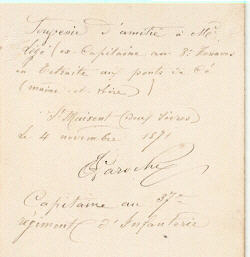 Souvenir d'amitié à Mr
Légé (ex-Capitaine au 8e Hussards
en Retraite aux ponts de Cé
(maine et Loire)
St Maixent (Deux Sèvres)
le 4 novembre 1871
Laroche
Capitaine au 37me
régiment d'Infanterie